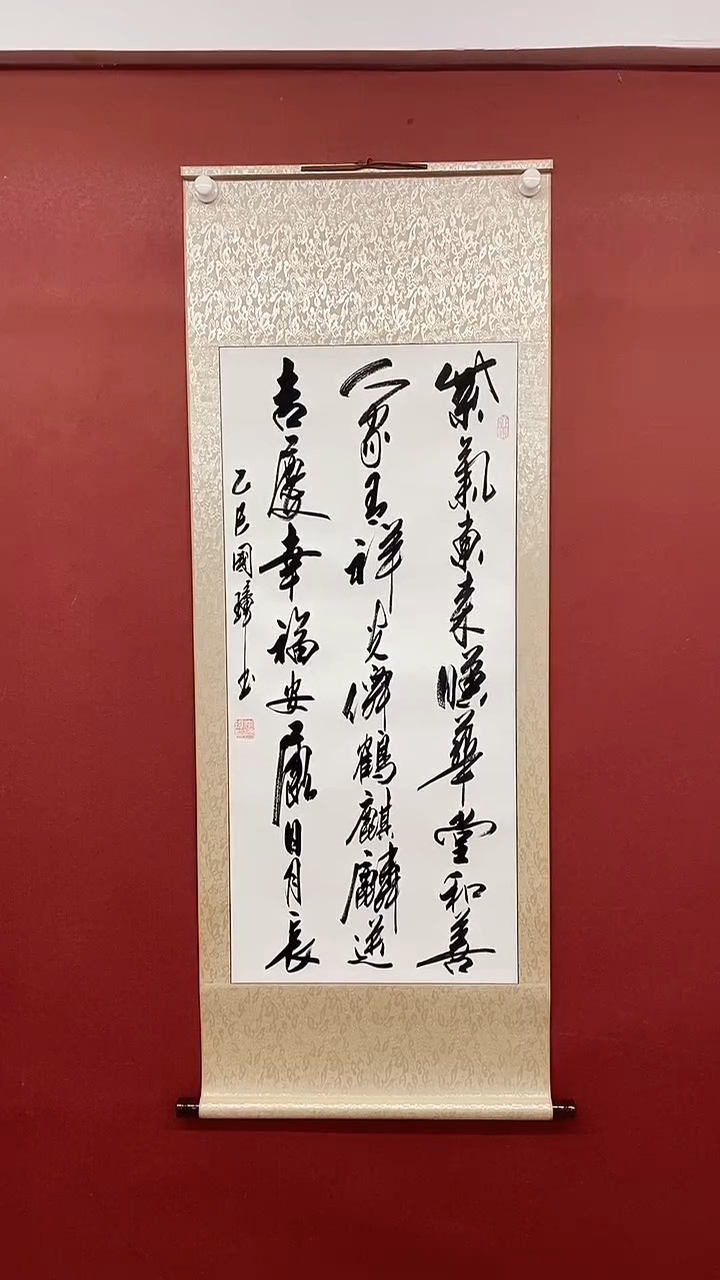 紫氣東來暎華堂和善
人家呈祥光僊鶴麒麟送
吉慶幸福安康日月長
乙巳國書